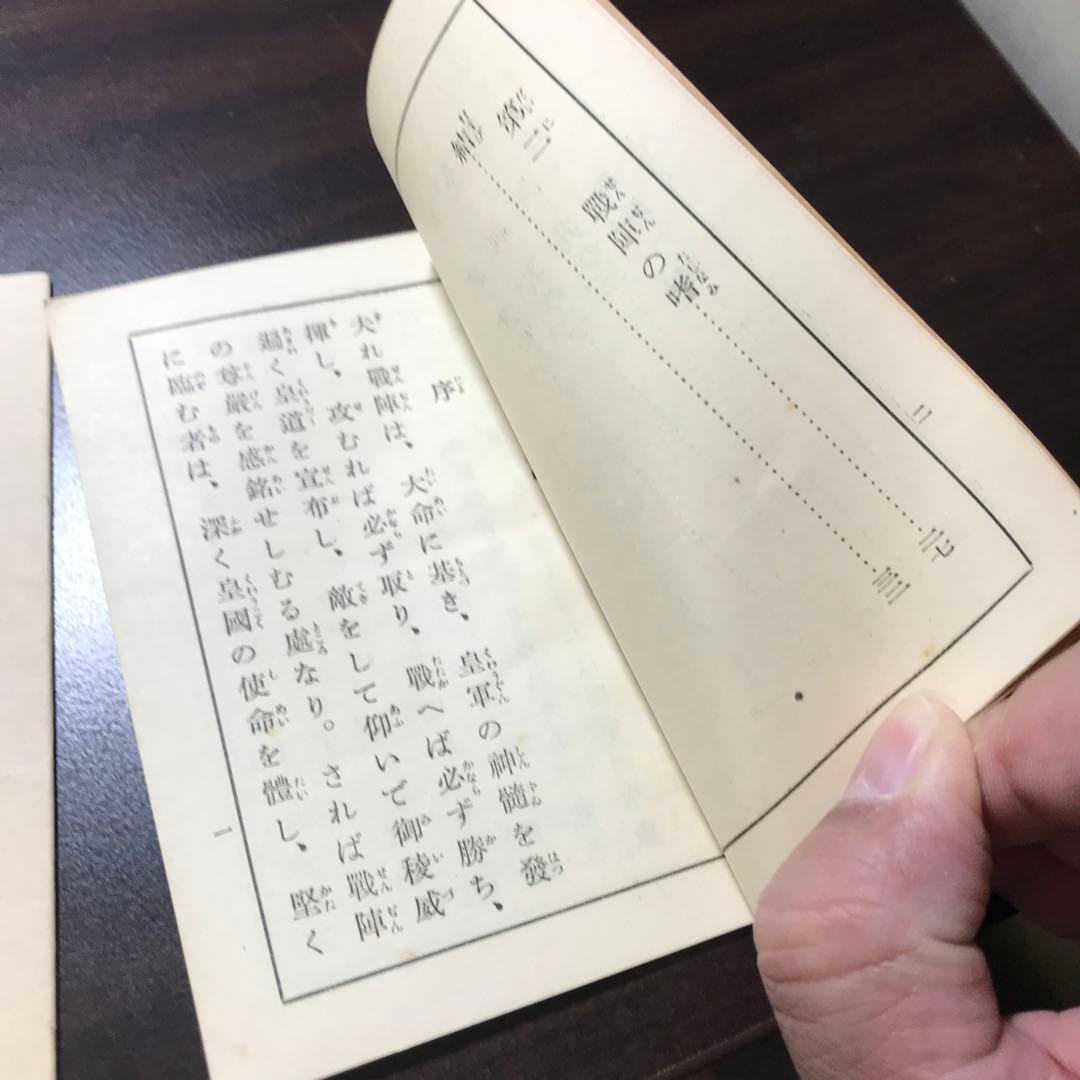 第二 戰陣の嗜………二七
結………
二
序
夫れ戰陣は、大命に基き、皇軍の神髓を發
揮し、攻むれば必ず取り、戰へば必ず勝ち、
遍く皇道を宣布し、敵をして仰いで御稜威
の尊嚴を感銘せしむる處なり。されば戰陣
に臨む者は、深く皇國の使命を體し、堅く
一